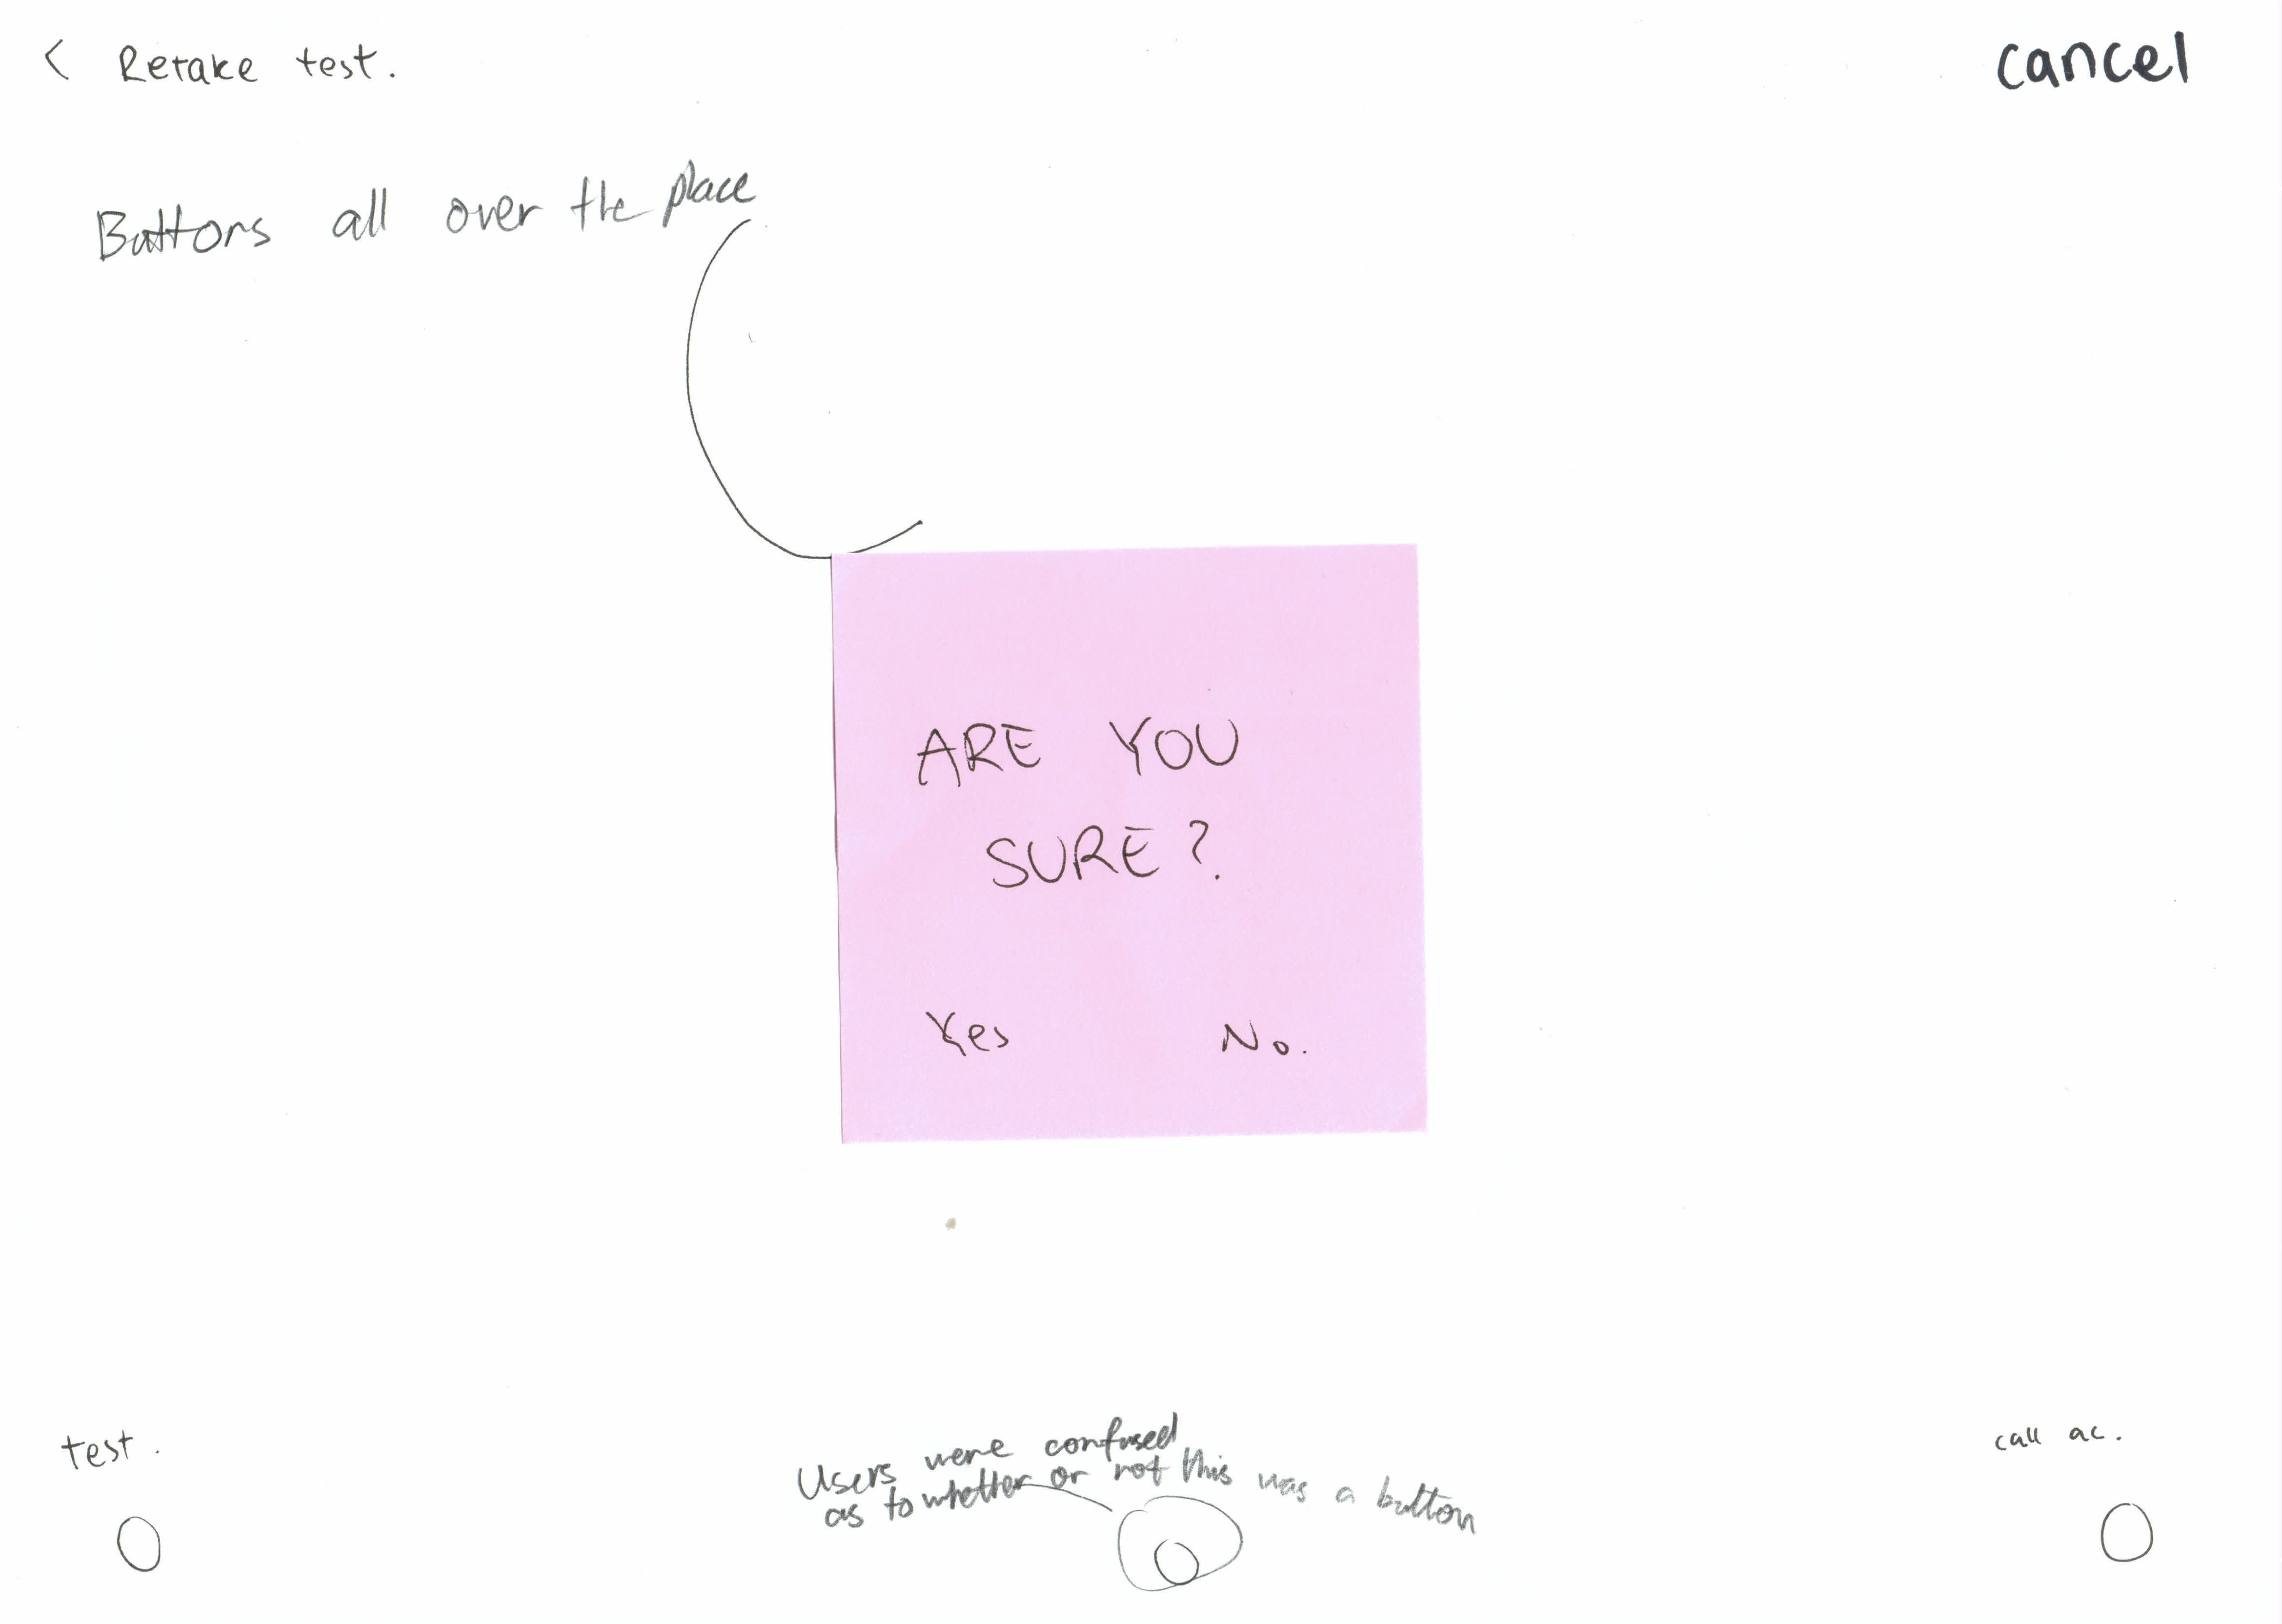 < Retake test.
cancel
Buttons all over the place
ARE YOU
SURE?
Yes No.
test.
Users were confused
as to whether or not this was a button
call ac.